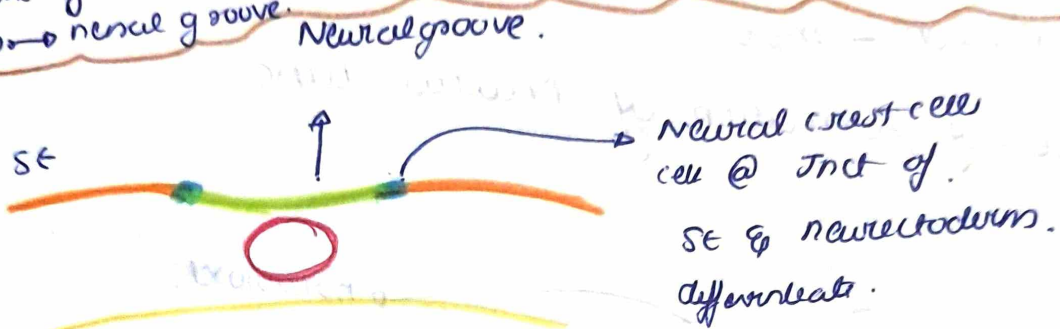 → neural groove.
Neural groove.
SE
Neural crest cells
cell @ Jnct of.
SE & neurectoderm.
differentiate.